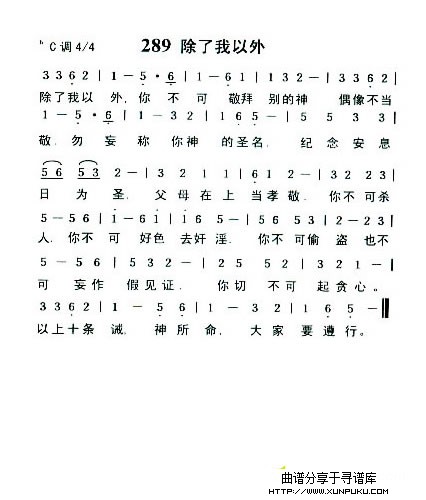 ♭C调4/4 289 除了我以外
3 3 6 2 | 1 - 5 · 6 | 1 - 6 1 | 1 3 2 - | 3 3 6 2 |
除了我以 外,你 不 可 敬拜 别的神 偶像不当
1 - 5 · 6 | 1 - 3 2 | 1 6 5 - | 5 5 3 3 |
敬.勿 妄 称 你神 的圣名, 纪念安息
5 6 5 3 2 - | 3 2 1 2 | 3 5 2 - | 3 2 2 3 |
日 为 圣. 父母在上 当孝敬. 你不可杀
5 - 5 6 | 1 - 6 1 | 1 6 5 - | 5 5 3 2 3 |
人.你不 可 好色 去奸 淫. 你不可偷 盗也不
5 - 5 6 | 5 3 2 - | 5 2 5 5 | 3 2 1 - |
可 妄作 假见证. 你切 不可 起贪心.
3 3 6 2 | 1 - 5 6 | 1 - 5 2 3 | 1 6 5 - ‖
以上十条 诫. 神所 命, 大家 要遵行.
曲谱分享于寻谱库
WWW.XUNPUKU.COM